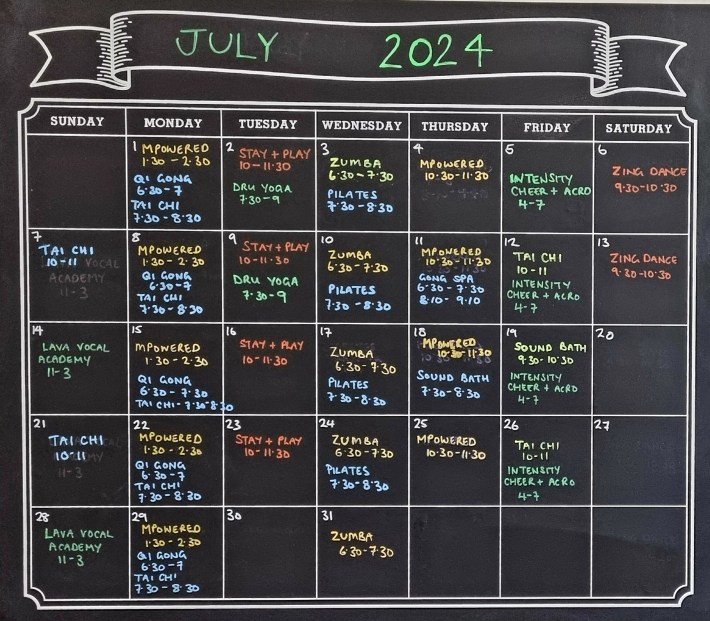 JULY 2024
SUNDAY MONDAY TUESDAY WEDNESDAY THURSDAY FRIDAY SATURDAY
1 MPOWERED
1·30 - 2·30
QI GONG
6·30 - 7
TAI CHI
7·30 - 8·30
2 STAY + PLAY
10 - 11·30
DRU YOGA
7·30 - 9
3
ZUMBA
6·30 - 7·30
PILATES
7·30 - 8·30
4
MPOWERED
10·30 - 11·30
5
INTENSITY
CHEER + ACRO
4-7
6
ZING DANCE
9·30 - 10·30
7
TAI CHI
10-11 VOCAL
ACADEMY
11-3
8
MPOWERED
1·30 - 2·30
QI GONG
6·30 - 7
TAI CHI
7·30 - 8·30
9 STAY + PLAY
10 - 11·30
DRU YOGA
7·30 - 9
10
ZUMBA
6·30 - 7·30
PILATES
7·30 - 8·30
11
MPOWERED
10·30 - 11·30
GONG SPA
6·30 - 7·30
8·10 - 9·10
12
TAI CHI
10-11
INTENSITY
CHEER + ACRO
4-7
13
ZING DANCE
9·30 - 10·30
14
LAVA VOCAL
ACADEMY
11-3
15
MPOWERED
1·30 - 2·30
QI GONG
6·30 - 7·30
TAI CHI - 7·30-8·30
16
STAY + PLAY
10 - 11·30
17
ZUMBA
6·30 - 7·30
PILATES
7·30 - 8·30
18
MPOWERED
10·30 - 11·30
SOUND BATH
7·30 - 8·30
19
SOUND BATH
9·30 - 10·30
INTENSITY
CHEER + ACRO
4-7
20
21
TAI CHI
10-11
11-3
22
MPOWERED
1·30 - 2·30
QI GONG
6·30 - 7
TAI CHI
7·30 - 8·30
23
STAY + PLAY
10 - 11·30
24
ZUMBA
6·30 - 7·30
PILATES
7·30 - 8·30
25
MPOWERED
10·30 - 11·30
26
TAI CHI
10-11
INTENSITY
CHEER + ACRO
4-7
27
28
LAVA VOCAL
ACADEMY
11-3
29
MPOWERED
1·30 - 2·30
QI GONG
6·30 - 7
TAI CHI
7·30 - 8·30
30
31
ZUMBA
6·30 - 7·30